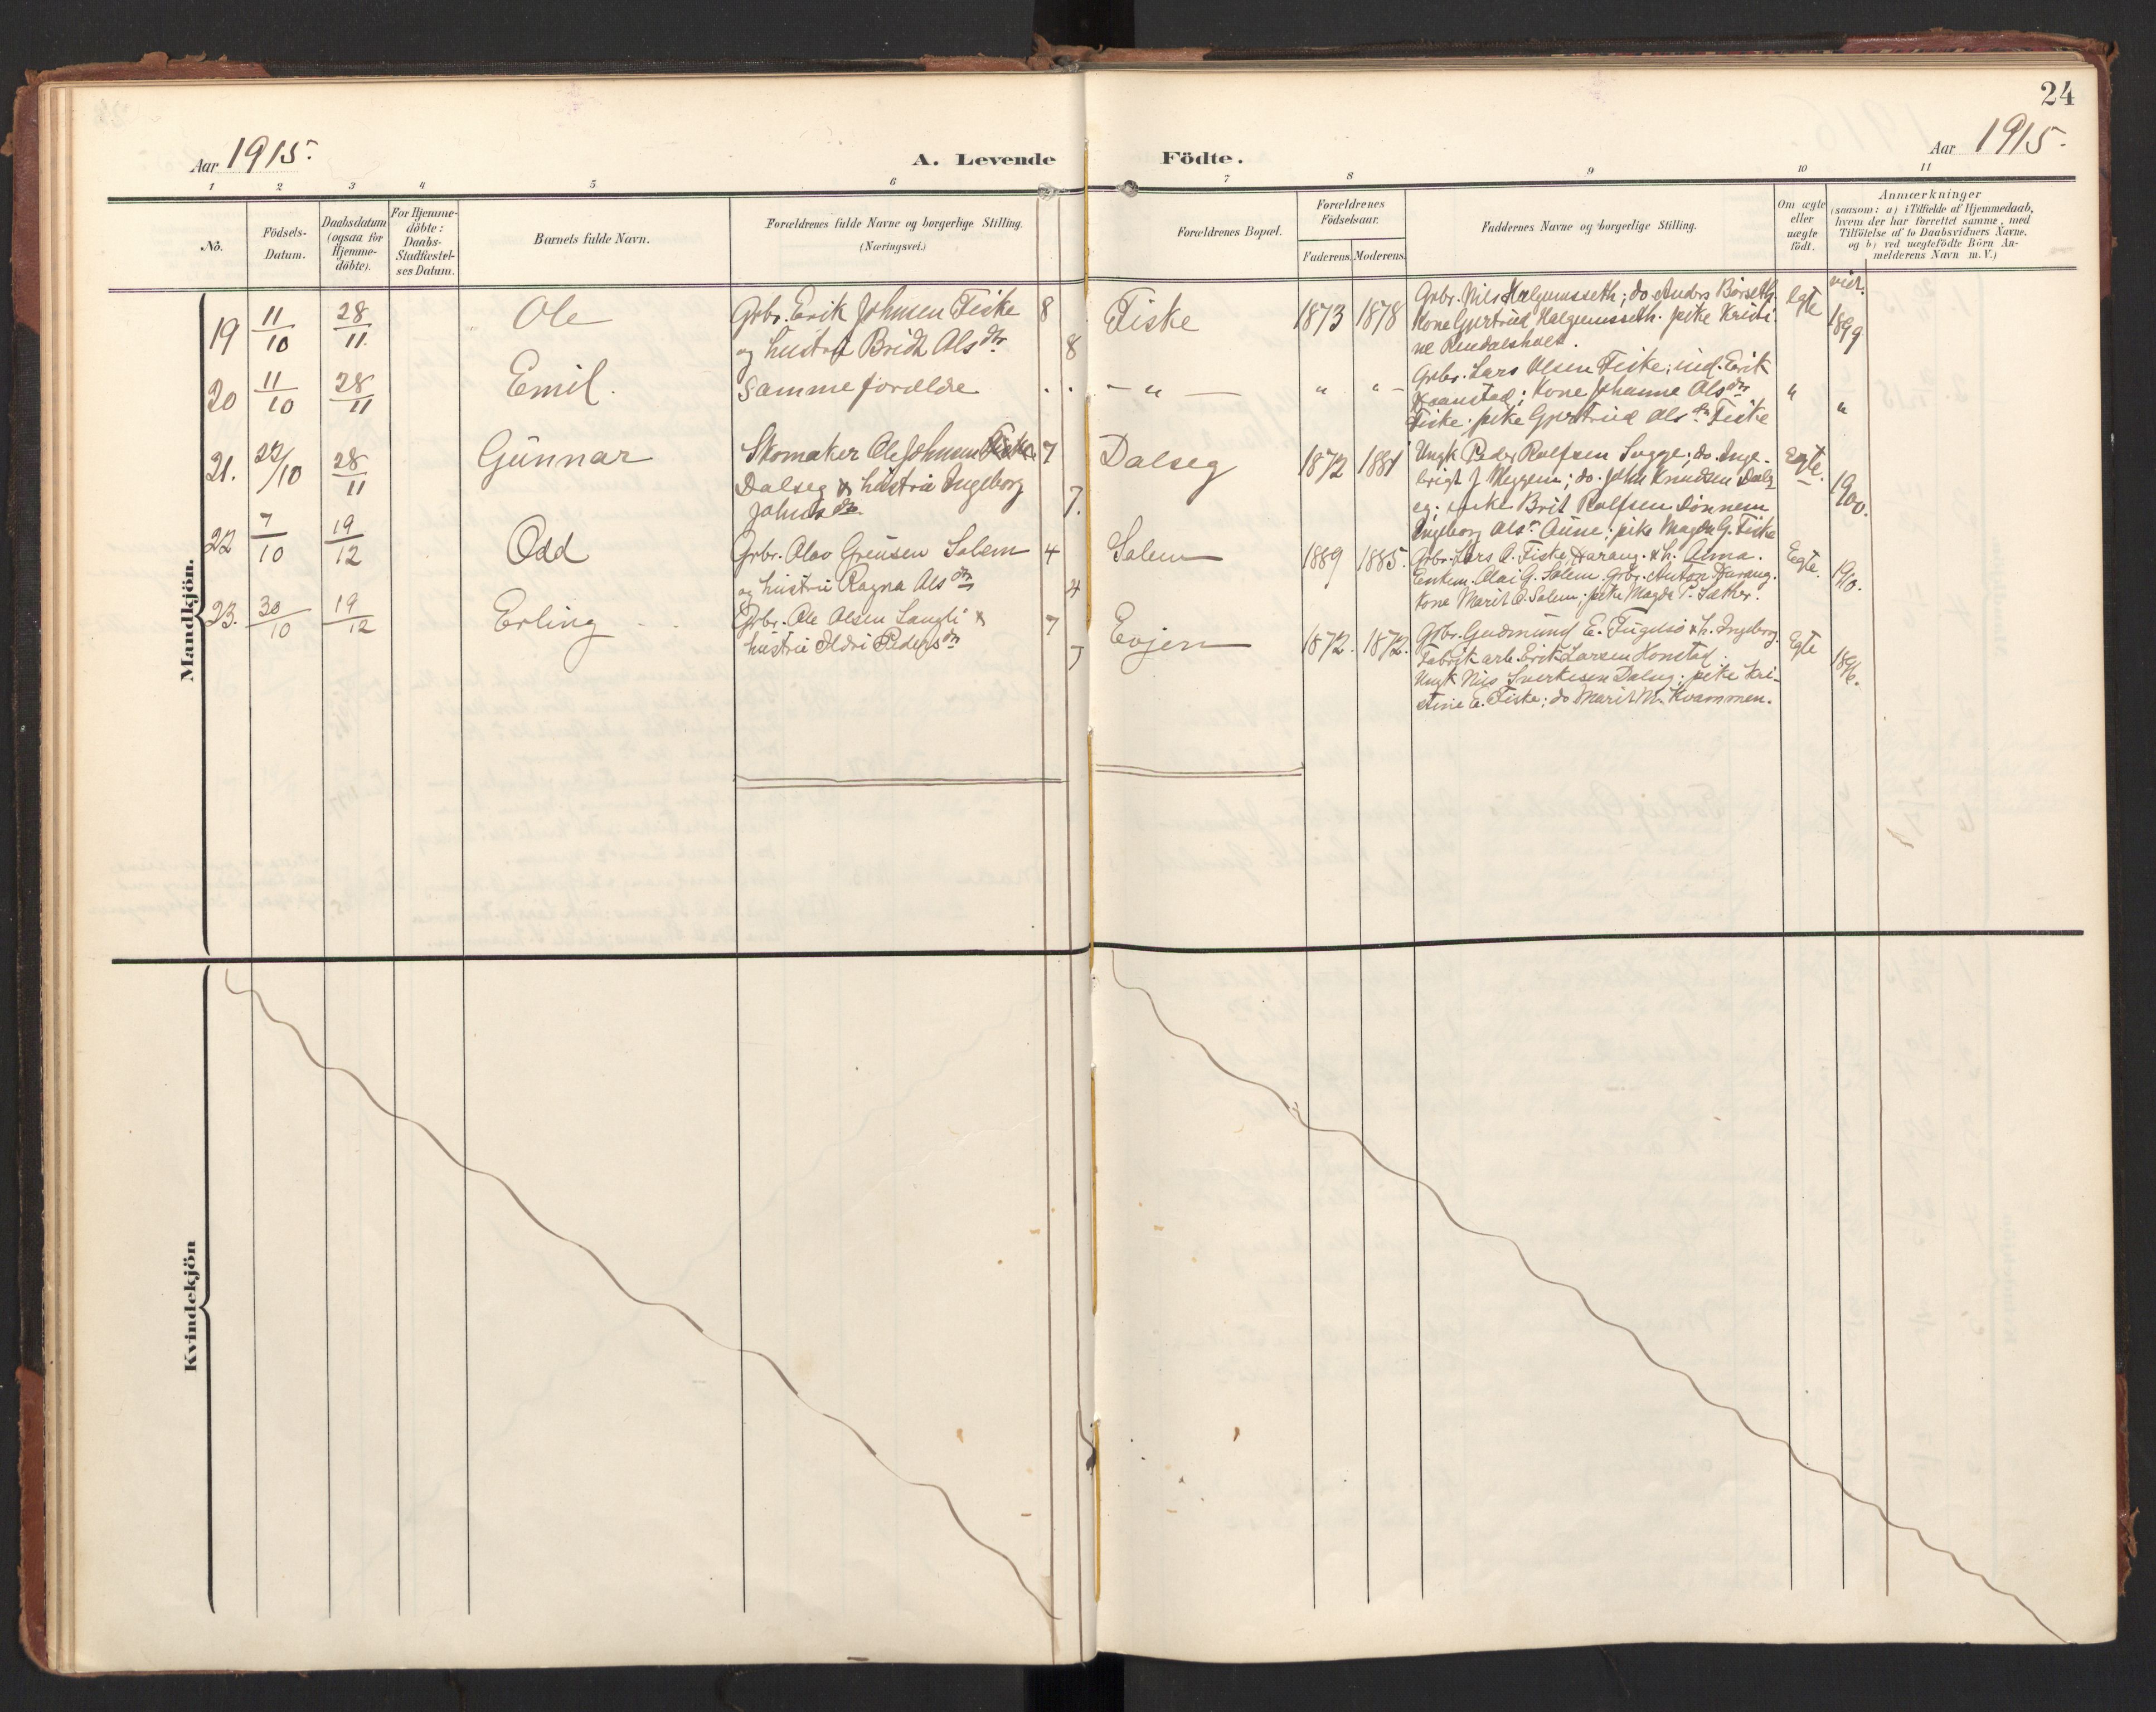 24
Aar 1915.
A. Levende Födte.
Aar 1915.
1 2 3 4 5 6 7 8 9 10 11
No.
Födsels-
Datum.
Daabsdatum
(ogsaa for
Hjemme-
döbte).
For Hjemme-
döbte:
Daabs-
Stadfæstel-
ses Datum.
Barnets fulde Navn.
Forældrenes fulde Navne og borgerlige Stilling.
(Næringsvei.)
Forældrenes Bopæl.
Forældrenes
Födselsaar.
Faderens. Moderens.
Faddernes Navne og borgerlige Stilling.
Om ægte
eller
uægte
födt.
Anmærkninger
(saasom: a) i Tilfælde af Hjemmedaab,
hvem der har forrettet samme, med
Tilföielse af to Daabsvidners Navne,
og b) ved uægtefödte Börn An-
melderens Navn m. V.)
Mandkjön.
19 11/10 28/11. Ole
Grbr. Erik Johnsen Fiske 8
og hustru Bridt Olsdtr. 8
Fiske 1873 1878
Grbr. Nils Halgunsseth; do Anders Börseth.
Kone Gjertrud Halgunsseth. pike Kristi-
ne
Egte
vier.
1899
20 11/10 28/11 Emil.
Samme forældre . .
— " — " " -
Grbr. Lars Olsen Fiske; ind. Erik
; Kone Johanne Olsdtr
Fiske; pike Gjertrud Olsdtr Fiske
" "
21. 22/10 28/11 Gunnar
Skomaker Ole Johnsen Fiske 7
Dalseg & hustru Ingeborg
Johnsdtr. 7.
Dalseg 1872 1881
Ungk Peder Rolfsen Sugge; do. Inge-
brigt J ; do. John Knudsen Dals-
eg; pike Brit Rolfsen Dönnem
Ingeborg Olsdr Aune; pike Magda G. Fiske
Egte.
1900.
22 7/10 19/12 Odd
Grbr. Olav Salem 4
og hustru Ragna Olsdtr 4
Salem 1889 1885.
Grbr. Lars O. Fiske, Harang. & h. Alma.
Enkem. Olai G. Salem. Grbr. Anton Harang.
Kone Marit O. Salem; pike Magda T. Sæther.
Egte.
1910.
23. 30/10 19/12 Erling
Grbr. Ole Olsen Langli & 7
hustru Ildri Pedersdtr 7
Evjen 1872. 1872.
Grbr. Gudmund E. Fugelsö & h. Ingeborg.
Fabrikarb. Erik Larsen Honstad.
Ungk Nils Sverkesen Dalseg; pike Kri-
stine E. Fiske; do Marit M. Kvammen.
Egte
1896.
Kvindekjön